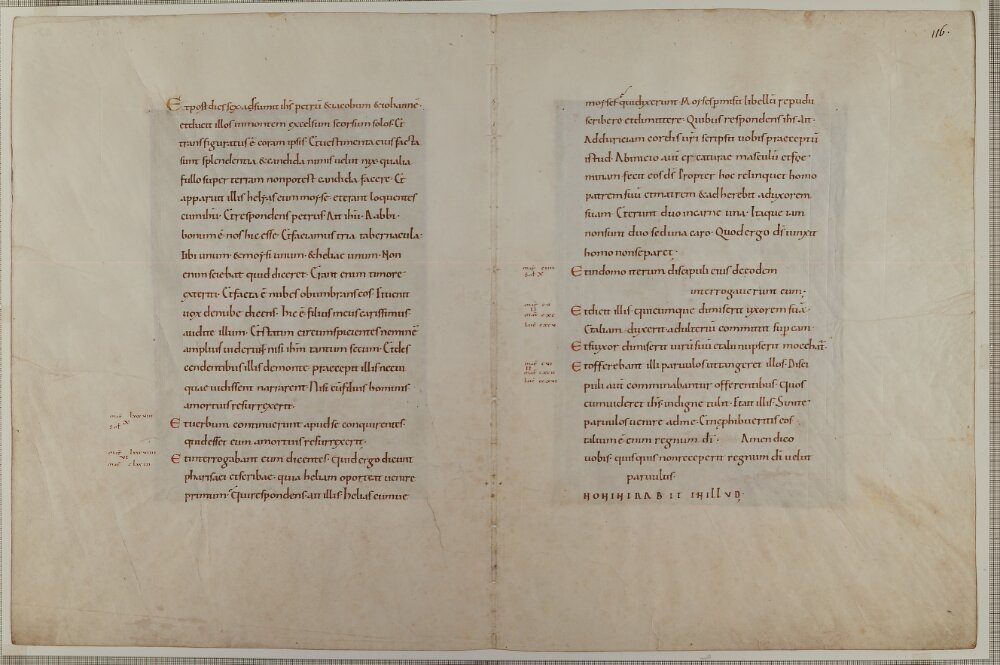 Et post dies sex adsumit ihs petrū & iacobum & iohannē·
et ducit illos in montem excelsum seorsum solos· Et
transfiguratus ē coram ipsis· Et uestimenta eius facta
sunt splendentia & candida nimis uelut nyx· qualia
fullo super terram non potest candida facere· Et
apparuit illis helyas cum moyse· et erant loquentes
cum ihu· Et respondens petrus· Ait ihu· Rabbi·
bonum ē nos hic esse· Et faciamus tria tabernacula·
Tibi unum· & moysi unum· & heliae unum· Non
enim sciebat quid diceret· Erant enim timore
exterriti· Et facta ē nubes obumbrans eos· Et uenit
uox de nube dicens· hic ē filius meus carissimus
audite illum· Et statim circumspicientes neminē
amplius uiderunt nisi ihm tantum secum· Et des
cendentibus illis de monte· praecepit illis ne cui
quae uidissent narrarent· Nisi cū filius hominis
a mortuis resurrexerit·
Et uerbum continuerunt apud se conquirentes·
quid esset cum a mortuis resurrexerit·
Et interrogabant eum dicentes· Quid ergo dicunt
pharisaei et scribae· quia heliam oportet uenire
primum· Qui respondens ait illis· helias cum ue
116·
moyses· qui dixerunt· Moyses pmisit libellū repudii
scribere et dimittere· Quibus respondens ihs· Ait·
Ad duriciam cordis uri scripsit uobis praeceptū
istud· Ab inicio aut creaturae masculū et foe
minam fecit eos ds· Propter hoc relinquet homo
patrem suū et matrem & adherebit ad uxorem
suam· Et erunt duo in carne una· Itaque iam
non sunt duo sed una caro· Quod ergo ds iunxit
homo non separet·
Et in domo iterum discipuli eius de eodem
interrogauerunt eum·
Et dicit illis· quicumque dimiserit uxorem suā·
Et aliam duxerit adulteriū committit sup eam·
Et si uxor dimiserit uirū suū et alii nupserit moechat·
Et offerebant illi paruulos ut tangeret illos· Disci
puli aut comminabantur offerentibus· Quos
cum uideret ihs indigne tulit· Et ait illis· Sinite
paruulos uenire ad me· Et ne phibueritis eos·
talium ē enim regnum di· Amen dico
uobis· quisquis non receperit regnum di uelut
paruulus·
NON INTRABIT IN ILLUD·